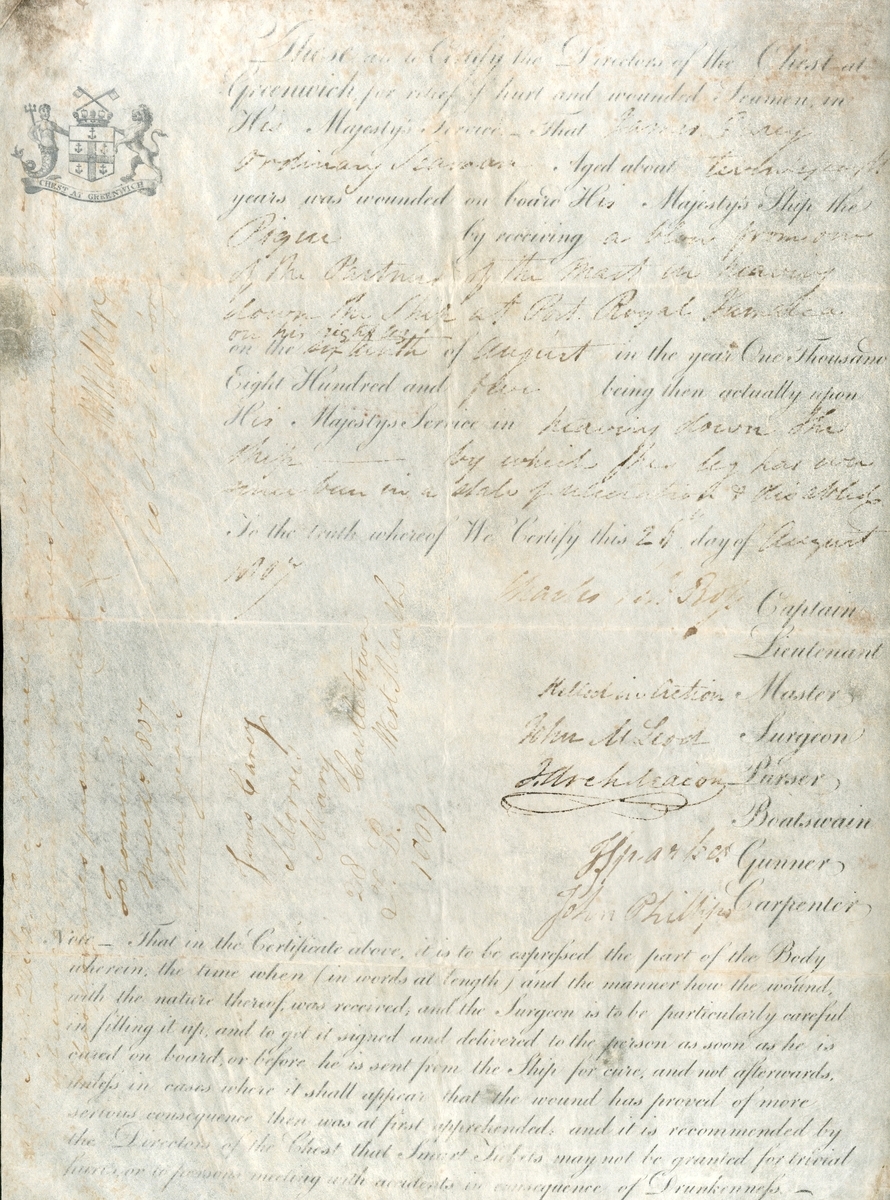 These are to Certify the Directors of the Chest at
Greenwich for relief of hurt and wounded Seamen, in
His Majesty's Service - That James Carey
Ordinary Seaman Aged about twenty eight
years was wounded on board His Majesty's Ship the
Pique by receiving a blow from one
of the Partners of the Mast in heaving
down the Ship at Port Royal Jamaica
on his right leg
on the sixteenth of August in the year One Thousand
Eight Hundred and five being then actually upon
His Majesty's Service in heaving down the
Ship — by which his leg has ever
since been in a state of ulceration & disabled
To the truth whereof We Certify this day of August
1807
Charles Ross Captain
Lieutenant
Killed in Action Master
John McLeod Surgeon
J. Archdeacon Purser
Boatswain
J Sparkes Gunner
John Phillips Carpenter
CHEST AT GREENWICH
1807
James Carey
Morris
Mary
28
Castletown
West Meath
1809
Note - That in the Certificate above, it is to be expressed the part of the Body
wherein, the time when (in words at length) and the manner how the wound,
with the nature thereof, was received; and the Surgeon is to be particularly careful
in filling it up, and to get it signed and delivered to the person as soon as he is
cured on board, or before he is sent from the Ship for cure, and not afterwards,
unless in cases where it shall appear that the wound has proved of more
serious consequence then was at first apprehended; and it is recommended by
the Directors of the Chest that Smart Tickets may not be granted for trivial
hurts, or to persons meeting with accidents in consequence of Drunkenness. -